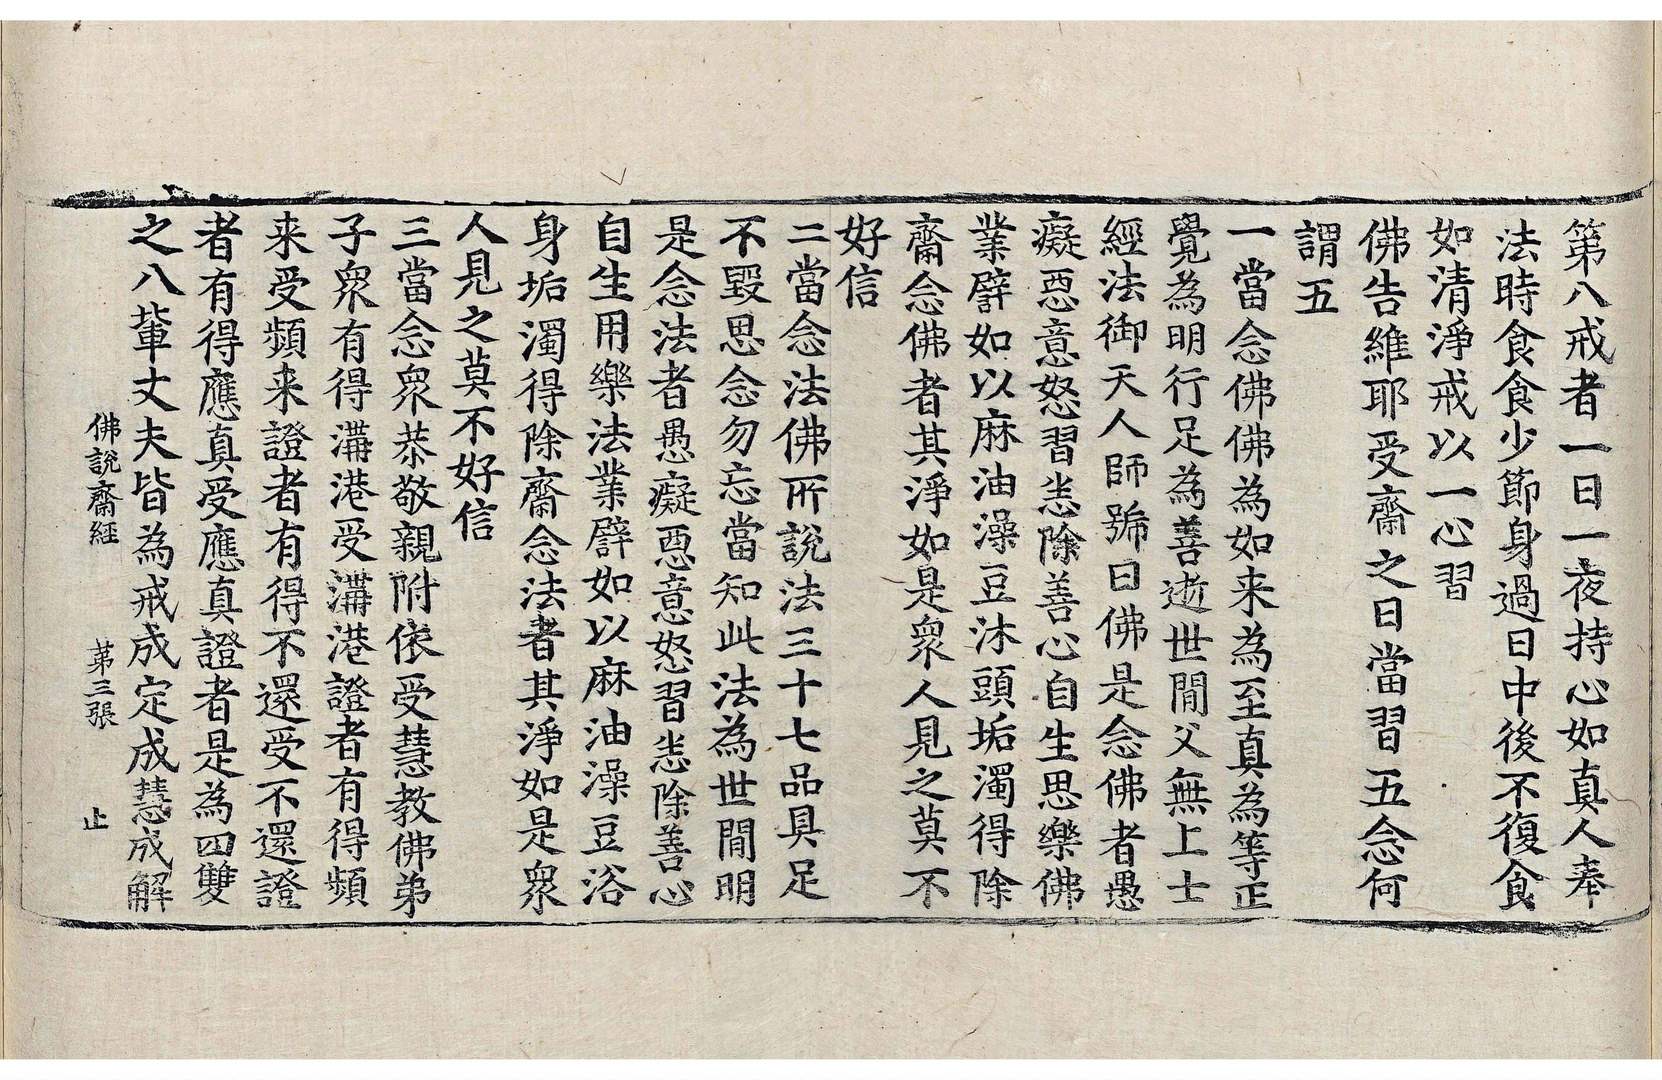 第八戒者一日一夜持心如真人奉
法時食食少節身過日中後不復食
如清淨戒以一心習
佛告維耶受齋之日當習五念何
謂五
一當念佛佛為如来為至真為等正
覺為明行足為善逝世閒父無上士
經法御天人師號曰佛是念佛者愚
癡惡意怒習悉除善心自生思樂佛
業譬如以麻油澡豆沐頭垢濁得除
齋念佛者其淨如是衆人見之莫不
好信
二當念法佛所說法三十七品具足
不毀思念勿忘當知此法為世閒明
是念法者愚癡惡意怒習悉除善心
自生用樂法業譬如以麻油澡豆浴
身垢濁得除齋念法者其淨如是衆
人見之莫不好信
三當念衆恭敬親附依受慧教佛弟
子衆有得溝港受溝港證者有得頻
来受頻来證者有得不還受不還證
者有得應真受應真證者是為四雙
之八輩丈夫皆為戒成定成慧成解
佛說齋經 第三張 止